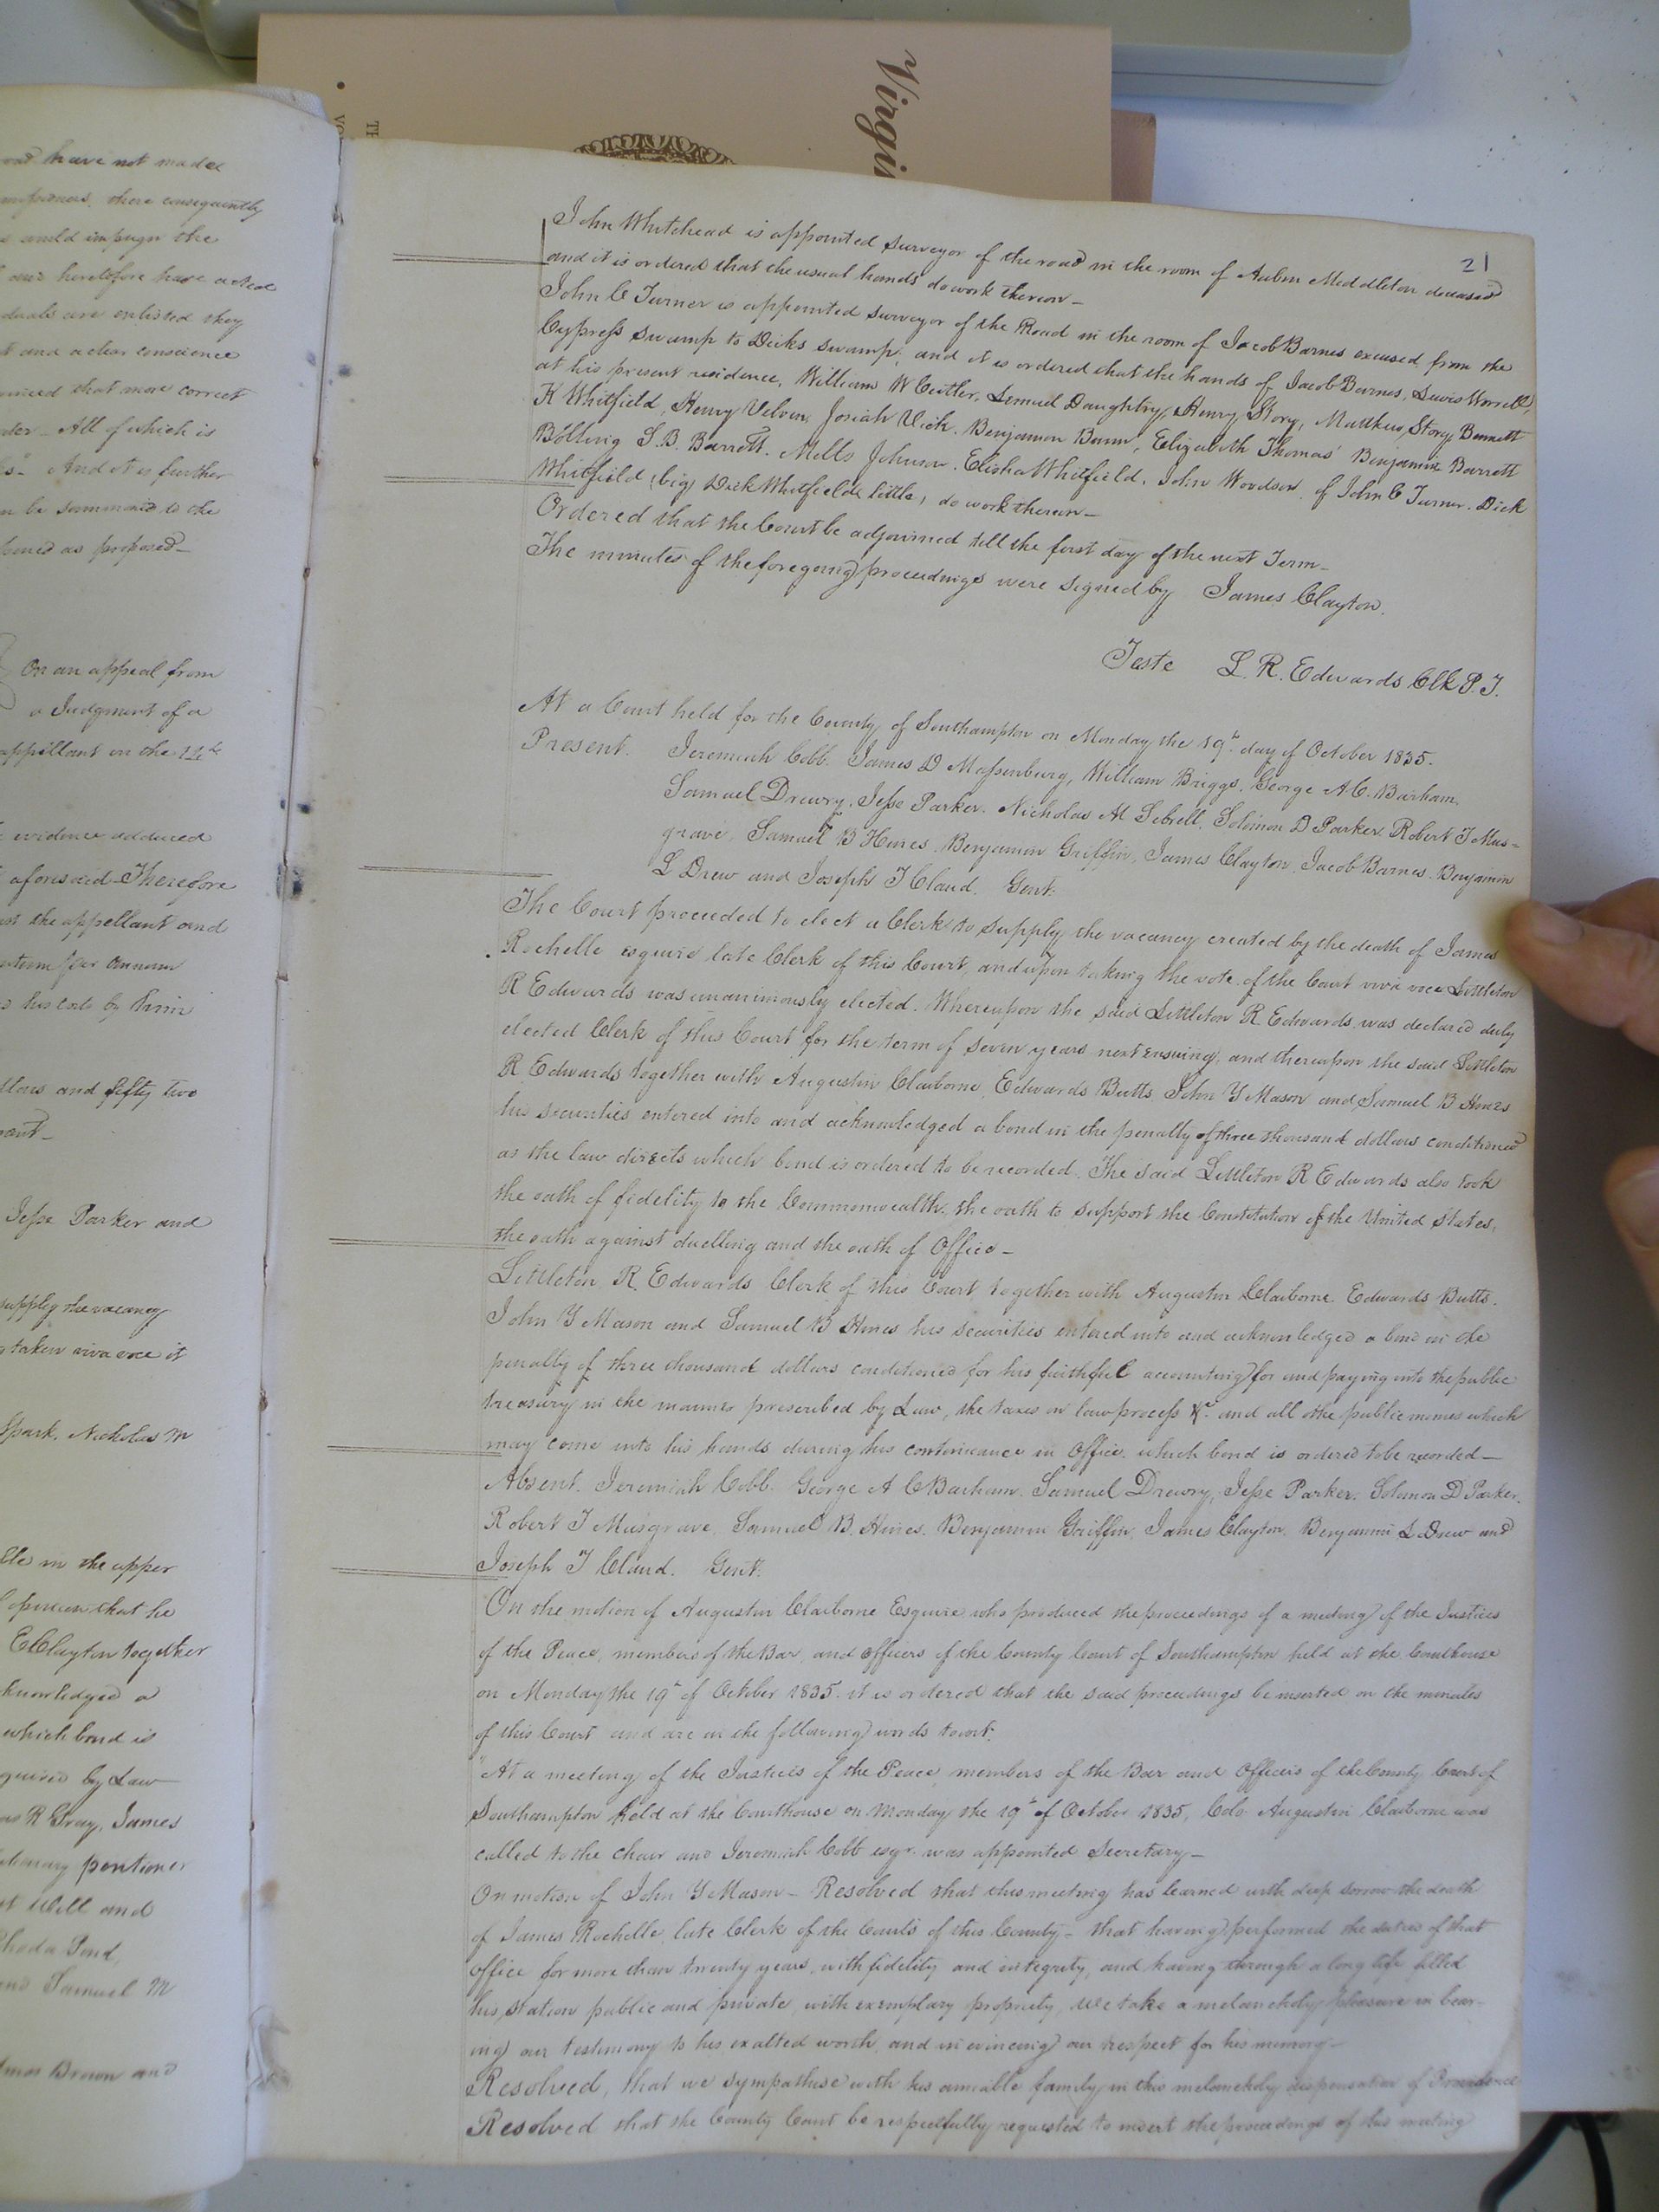 Virgi
TH
VO
21
have not made
there consequently
could impugn the
heretofore have acted
are enlisted they
and a clear conscience
that more correct
All of which is
And it is further
be summoned to the
as proposed
On an appeal from
a Judgment of a
appellant on the
evidence adduced
aforesaid Therefore
the appellant and
per Annum
his costs by him
and fifty two
Jesse Parker and
supply the vacancy
taken viva voce it
Spark, Nicholas M
in the upper
opinion that he
E Clayton together
acknowledged a
which bond is
by Law
R Gray, James
pentioner
Will and
Rhoda Pond,
and Samuel M
Brown and
John Whitehead is appointed surveyor of the road in the room of Meddleton deceased
and it is ordered that the usual hands do work thereon
John C Turner is appointed surveyor of the Road in the room of Jacob Barnes excused, from the
Cypress swamp to Dicks swamp, and it is ordered that the hands of Jacob Barnes, Lewis Worrell,
at his present residence, William W Cutler, Lemuel Daughtry, Henry Story, Matthew Story, Bennett
K Whitfield, Henry Josiah Vick, Benjamin Bunn, Elizabeth Thomas Benjamin Barrett
Bolling S. B. Barrett, Mills Johnson, Elisha Whitfield, John Woodson, of John C Turner. Dick
Whitfield (big) Dick Whitfield (little) do work thereon
Ordered that the Court be adjourned till the first day of the next Term
The minutes of the foregoing proceedings were signed by James Clayton.
Teste L. R. Edwards Clk P. T.
At a Court held for the County of Southampton on Monday the 19th day of October 1835.
Present. Jeremiah Cobb. James D Massenburg, William Briggs, George A. C. Barham,
Samuel Drewry, Jesse Parker. Nicholas M Sebrell, Solomon D Parker, Robert T Mus=
grave, Samuel B Hines, Benjamin Griffin, James Clayton, Jacob Barnes. Benjamin
L Drew and Joseph T Claud. Gent.
The Court proceeded to elect a Clerk to supply the vacancy created by the death of James
Rochelle esquire late Clerk of this Court, and upon taking the vote of the Court viva voce Littleton
R Edwards was unanimously elected. Whereupon the said Littleton R Edwards was declared duly
elected Clerk of this Court for the term of seven years next ensuing, and thereupon the said Littleton
R Edwards together with Augustin Claiborne, Edwards Butts John Y Mason and Samuel B Hines
his securities entered into and acknowledged a bond in the penalty of three thousand dollars conditioned
as the law directs which bond is ordered to be recorded. The said Littleton R Edwards also took
the oath of fidelity to the Commonwealth, the oath to support the Constitution of the United States,
the oath against duelling and the oath of Office
Littleton R. Edwards Clerk of this Court together with Augustin Claiborne Edwards Butts.
John Y Mason and Samuel B Hines his securities entered into and acknowledged a bond in the
penalty of three thousand dollars conditioned for his faithful accounting for and paying into the public
treasury in the manner prescribed by Law, the taxes on law process &c. and all othe public monies which
may come into his hands during his continuance in Office. which bond is ordered to be recorded
Absent. Jeremiah Cobb. George A C Barham. Samuel Drewry, Jesse Parker, Solomon D Parker.
Robert T Musgrave, Samuel B. Hines. Benjamin Griffin, James Clayton, Benjamin L Drew and
Joseph T Claud. Gent.
On the motion of Augustin Claiborne Esquire who produced the proceedings of a meeting of the Justices
of the Peace, members of the Bar, and officers of the County Court of Southampton held at the Courthouse
on Monday the 19th of October 1835. it is ordered that the said proceedings be inserted on the minutes
of this Court and are in the following words towit:
"At a meeting of the Justices of the Peace, members of the Bar and Officers of the County Court of
Southampton held at the Courthouse on Monday the 19th of October 1835, Colo Augustin Claiborne was
called to the chair and Jeremiah Cobb esqr. was appointed Secretary
On motion of John Y Mason - Resolved that this meeting has learned with deep sorrow the death
of James Rochelle late Clerk of the Courts of this County - that having performed the duties of that
office for more than twenty years, with fidelity and integrity, and having through a long life filled
his station public and private, with exemplary propriety, We take a melancholy pleasure in bear-
ing our testimony to his exalted worth, and in evincing our respect for his memory
Resolved, that we sympathise with his amiable family in this melancholy dispensation of Providence
Resolved that the County Court be respectfully requested to insert the proceedings of this meeting